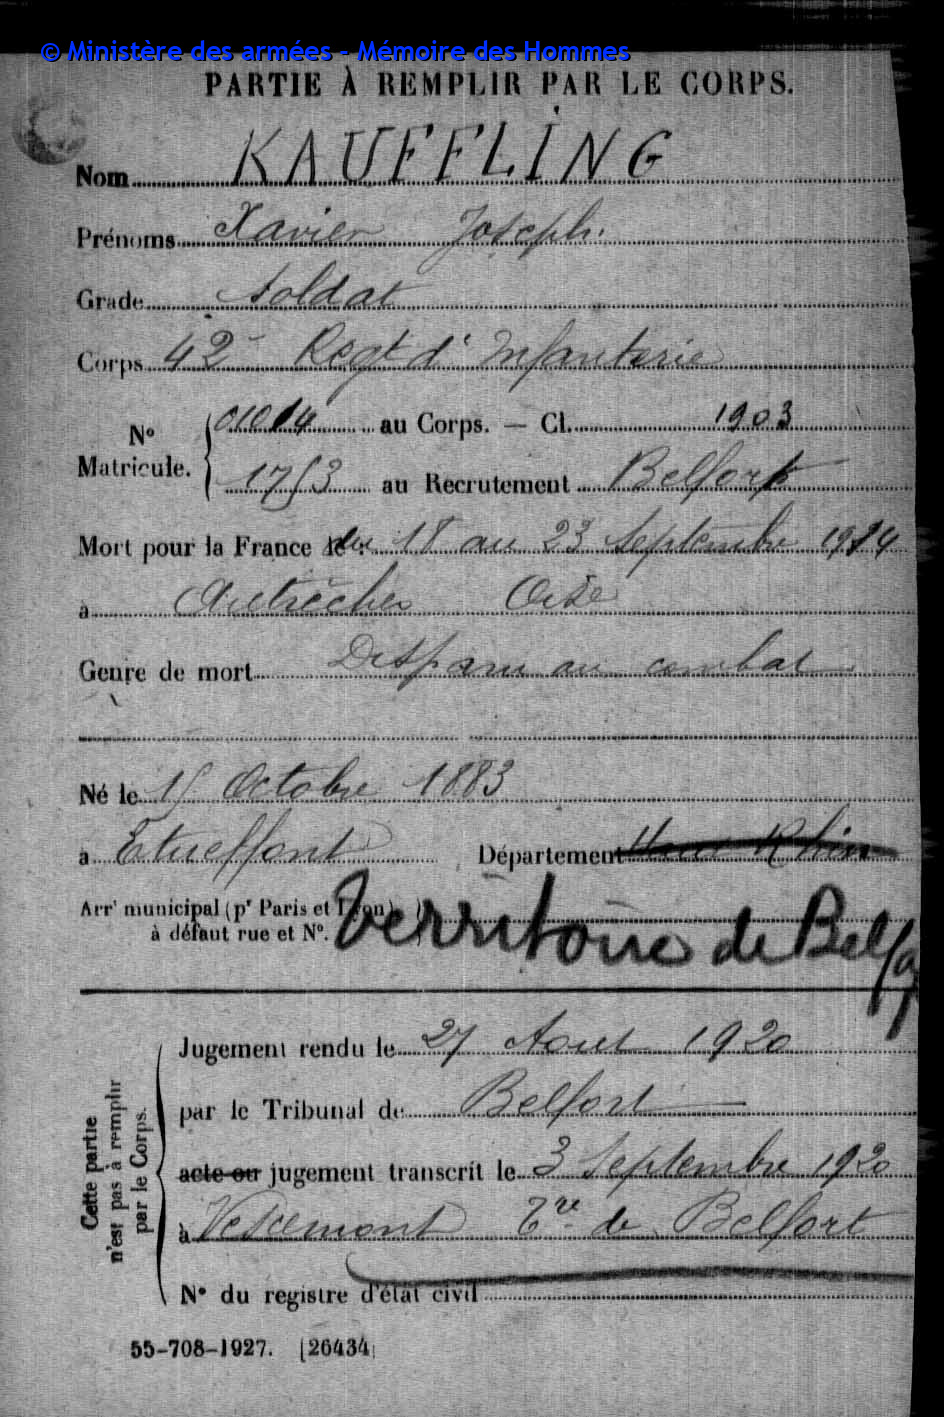 © Ministère des armées - Mémoire des Hommes
PARTIE À REMPLIR PAR LE CORPS.
Nom KAUFFLING
Prénoms Xavier Joseph.
Grade Soldat
Corps 42e Regt d'Infanterie
No Matricule. 01014 au Corps. — Cl. 1903
1753 au Recrutement Belfort
Mort pour la France le du 18 au 23 Septembre 1914
à Autrèches Oise
Genre de mort Disparu au combat
Né le 15 Octobre 1883
à Etueffont Département Haut Rhin
Arrt municipal (pr Paris et Lyon)
à défaut rue et No.
Territoire de Belfort
Cette partie n'est pas à remplir par le Corps.
Jugement rendu le 27 Aout 1920
par le Tribunal de Belfort
acte ou jugement transcrit le 3 Septembre 1920
à Vescemont Tre de Belfort
No du registre d'état civil
55-708-1927. [26434]